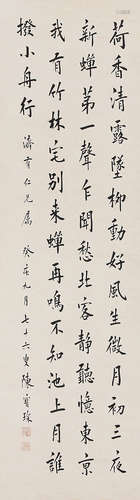 荷香清露墜柳動好風生微月初三夜
新蟬第一聲乍聞愁北客靜聽憶東京
我有竹林宅別來蟬再鳴不知池上月誰
撥小舟行
濟有仁兄屬 癸亥九月七十六叟陳寶琛